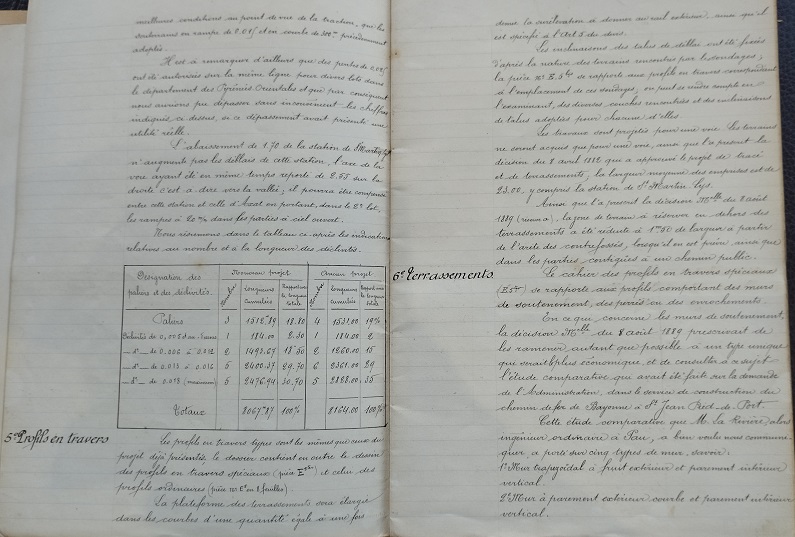 meilleures conditions au point de vue de la traction, que les
souterrains en rampe de 0.015 et en courbe de 300m précédemment
adoptés.
Il est à remarquer d'ailleurs que des pentes de
ont été autorisées sur la même ligne pour divers lots dans
le département des Pyrénées Orientales et que par conséquent
nous aurions pu dépasser sans inconvénient les chiffres
indiqués ci dessus, si ce dépassement avait présenté une
utilité réelle.
L'abaissement de 1.70 de la station de St Martin Lys
n'augmente pas les déblais de cette station, l'axe de la
voie ayant été en même temps reporté de 2.55 sur la
droite c'est à dire vers la vallée; il pourra être compensé
entre cette station et celle d'Axat en portant, dans le 2e lot,
les rampes à 20 m/m dans les parties à ciel ouvert.
Nous résumons dans le tableau ci-après les indications
relatives au nombre et à la longueur des déclivités.
Désignation des paliers et des déclivités
Nouveau projet
Ancien projet
Nombre
Longueurs cumulées
Rapport avec la longueur totale
Nombre
Longueurs cumulées
Rapport avec la longueur totale
Paliers 3 1512.89 18.80 4 1531.00 19%
Déclivités de 0,005 et au-dessous 1 184.00 2.30 1 184.00 2
_ do _ de 0.006 à 0.012 2 1493.67 18.50 2 1260.00 15
_ do _ de 0.013 à 0.016 5 2400.37 29.70 6 2361.00 29
_ do _ de 0.018 (maximum) 5 2476.94 30.70 5 2828.00 35
Totaux 8067.87 100% 8164.00 100%
5° Profils en travers
Les profils en travers types sont les mêmes que ceux du
projet déjà présenté, le dossier contient en outre le dessin
des profils en travers spéciaux (pièce E 5ter) et celui des
profils ordinaires (pièce no E en 2 feuilles).
La plateforme des terrassements sera élargie
dans les courbes d'une quantité égale à une fois
demie la surélévation à donner au rail extérieur, ainsi qu'il
est spécifié à l'Art 5 du devis.
Les inclinaisons des talus de déblai ont été fixées
d'après la nature des terrains rencontrés par les sondages;
la pièce no E.5ter se rapporte aux profils en travers correspondant
à l'emplacement de ces sondages, on peut se rendre compte en
l'examinant, des diverses couches rencontrées et des inclinaisons
de talus adoptées pour chacune d'elles.
Les travaux sont projetés pour une voie. Les terrains
ne seront acquis que pour une voie, ainsi que l'a présent la
décision du 8 avril 1882 qui a approuvé le projet de tracé
et de terrassements, la largeur moyenne des emprises est de
23.00, y compris la station de St Martin Lys.
Ainsi que l'a prescrit la décision Mlle du 8 août
1889 la zone de terrain à réserver en dehors des
terrassements a été réduite à 1m50 de largeur à partir
de l'arête des contrefossés, lorsqu'il en est prévu ainsi que
dans les parties contiguës à un chemin public.
6° Terrassements.
Le cahier des profils en travers spéciaux
(E 5ter) se rapporte aux profils comportant des murs
de soutènement, des perrés ou des enrochements.
En ce qui concerne les murs de soutènement,
la décision Mlle du 8 août 1889 prescrivait de
les ramener, autant que possible à un type unique
qui serait le plus économique, et de consulter à ce sujet
l'étude comparative qui avait été faite sur la demande
de l'Administration, dans le service de construction du
chemin de fer de Bayonne à St Jean Pied-de-Port.
Cette étude comparative que M. La Rivière, alors
ingénieur ordinaire à Pau, a bien voulu nous communi-
quer, a porté sur cinq types de mur, savoir:
1° Mur trapézoïdal à fruit extérieur et parement intérieur
vertical.
2° Mur à parement extérieur courbe et parement intérieur
vertical.